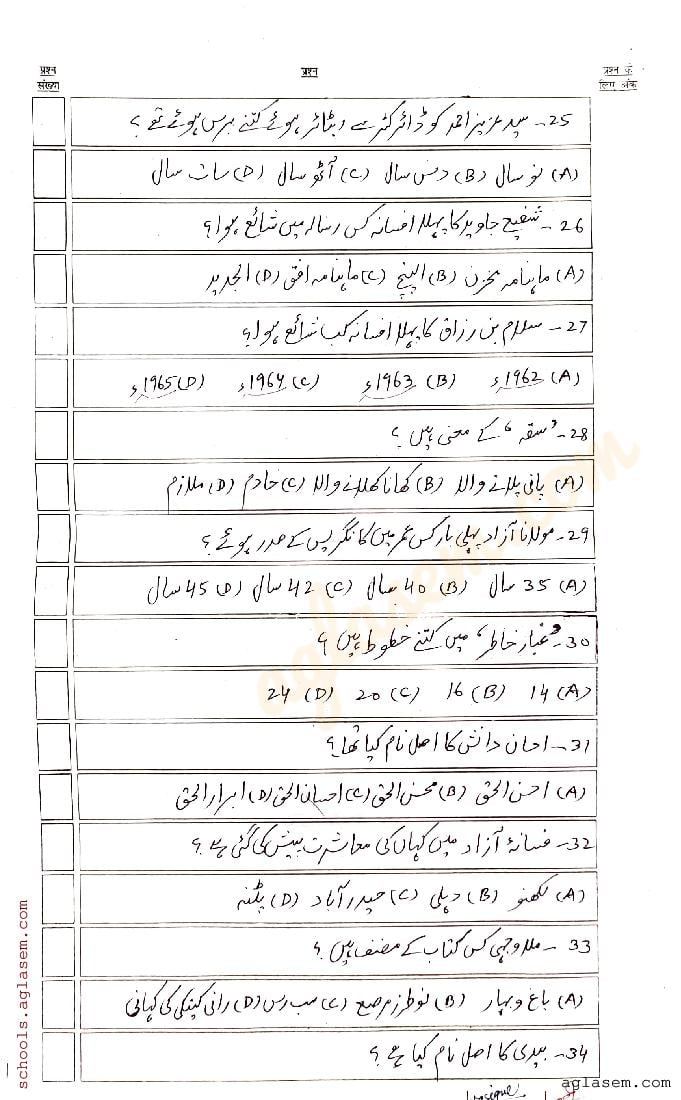 प्रश्न संख्या
प्रश्न
प्रश्न के लिए अंक
25- سید عزیز احمد کو ڈائرکٹر سے ریٹائر ہوئے کتنے برس ہوئے تھے؟
(A) نو سال (B) دس سال (C) آٹھ سال (D) سات سال
26- شفیع جاوید کا پہلا افسانہ کس رسالہ میں شائع ہوا؟
(A) ماہنامہ مخزن (B) البنچ (C) ماہنامہ افق (D) الجدید
27- سلام بن رزاق کا پہلا افسانہ کب شائع ہوا؟
(A) 1962ء (B) 1963ء (C) 1964ء (D) 1965ء
28- 'سقہ' کے معنی ہیں؟
(A) پانی پلانے والا (B) کھانا کھلانے والا (C) خادم (D) ملازم
29- مولانا آزاد پہلی بار کس عمر میں کانگریس کے صدر ہوئے؟
(A) 35 سال (B) 40 سال (C) 42 سال (D) 45 سال
30- 'غبار خاطر' میں کتنے خطوط ہیں؟
(A) 14 (B) 16 (C) 20 (D) 24
31- احسان دانش کا اصل نام کیا تھا؟
(A) احسن الحق (B) محسن الحق (C) احسان الحق (D) ابرار الحق
32- فسانۂ آزاد میں کہاں کی معاشرت پیش کی گئی ہے؟
(A) لکھنو (B) دہلی (C) حیدرآباد (D) پٹنہ
33- ملا وجہی کس کتاب کے مصنف ہیں؟
(A) باغ و بہار (B) نو طرز مرصع (C) سب رس (D) رانی کیتکی کی کہانی
34- بیدی کا اصل نام کیا ہے؟
schools.aglasem.com
aglasem.com
aglasem.com